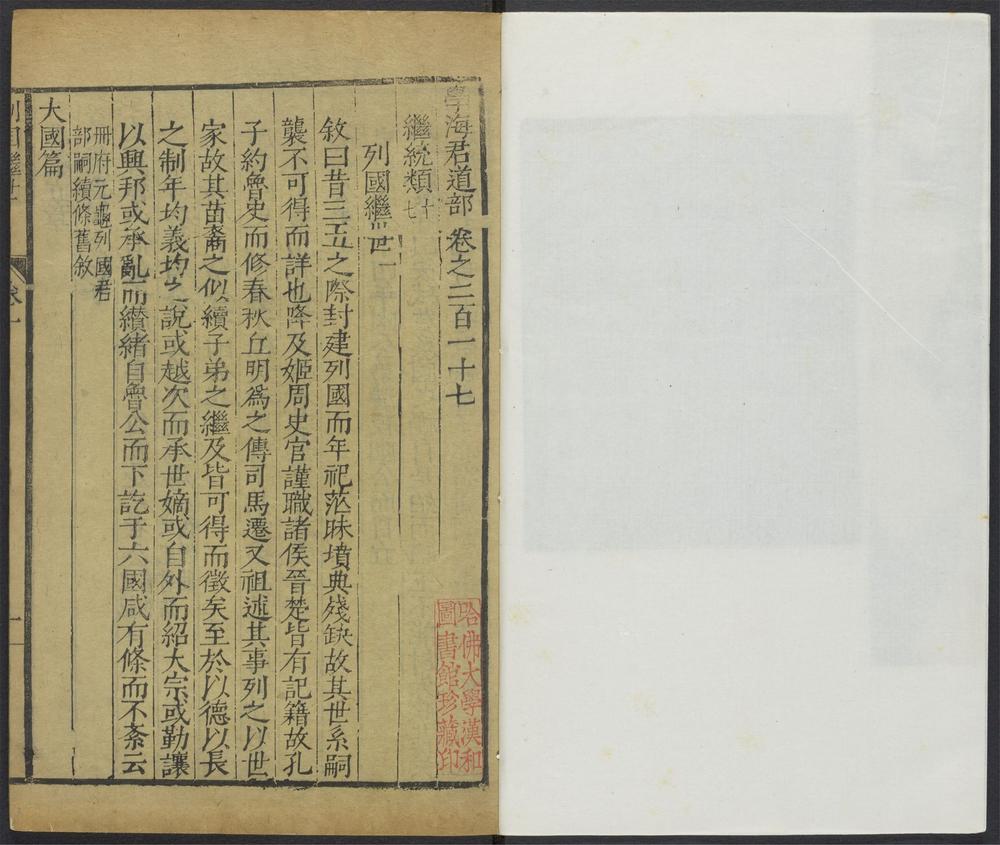 學海君道部 卷之二百一十七
繼統類 十七
列國繼世一
敘曰昔三五之際封建列國而年祀茫昧墳典殘缺故其世系嗣
襲不可得而詳也降及姬周史官謹職諸侯晉楚皆有記籍故孔
子約魯史而修春秋丘明為之傳司馬遷又祖述其事列之以世
家故其苗裔之似續子弟之繼及皆可得而徵矣至於以德以長
之制年均義均之說或越次而承世嫡或自外而紹大宗或勤讓
以興邦或承亂而纘緒自魯公而下訖于六國咸有條而不紊云
冊府元龜列國君
部嗣續條舊敘
大國篇
列國繼世
卷一
一
哈佛大學漢和
圖書館珍藏印